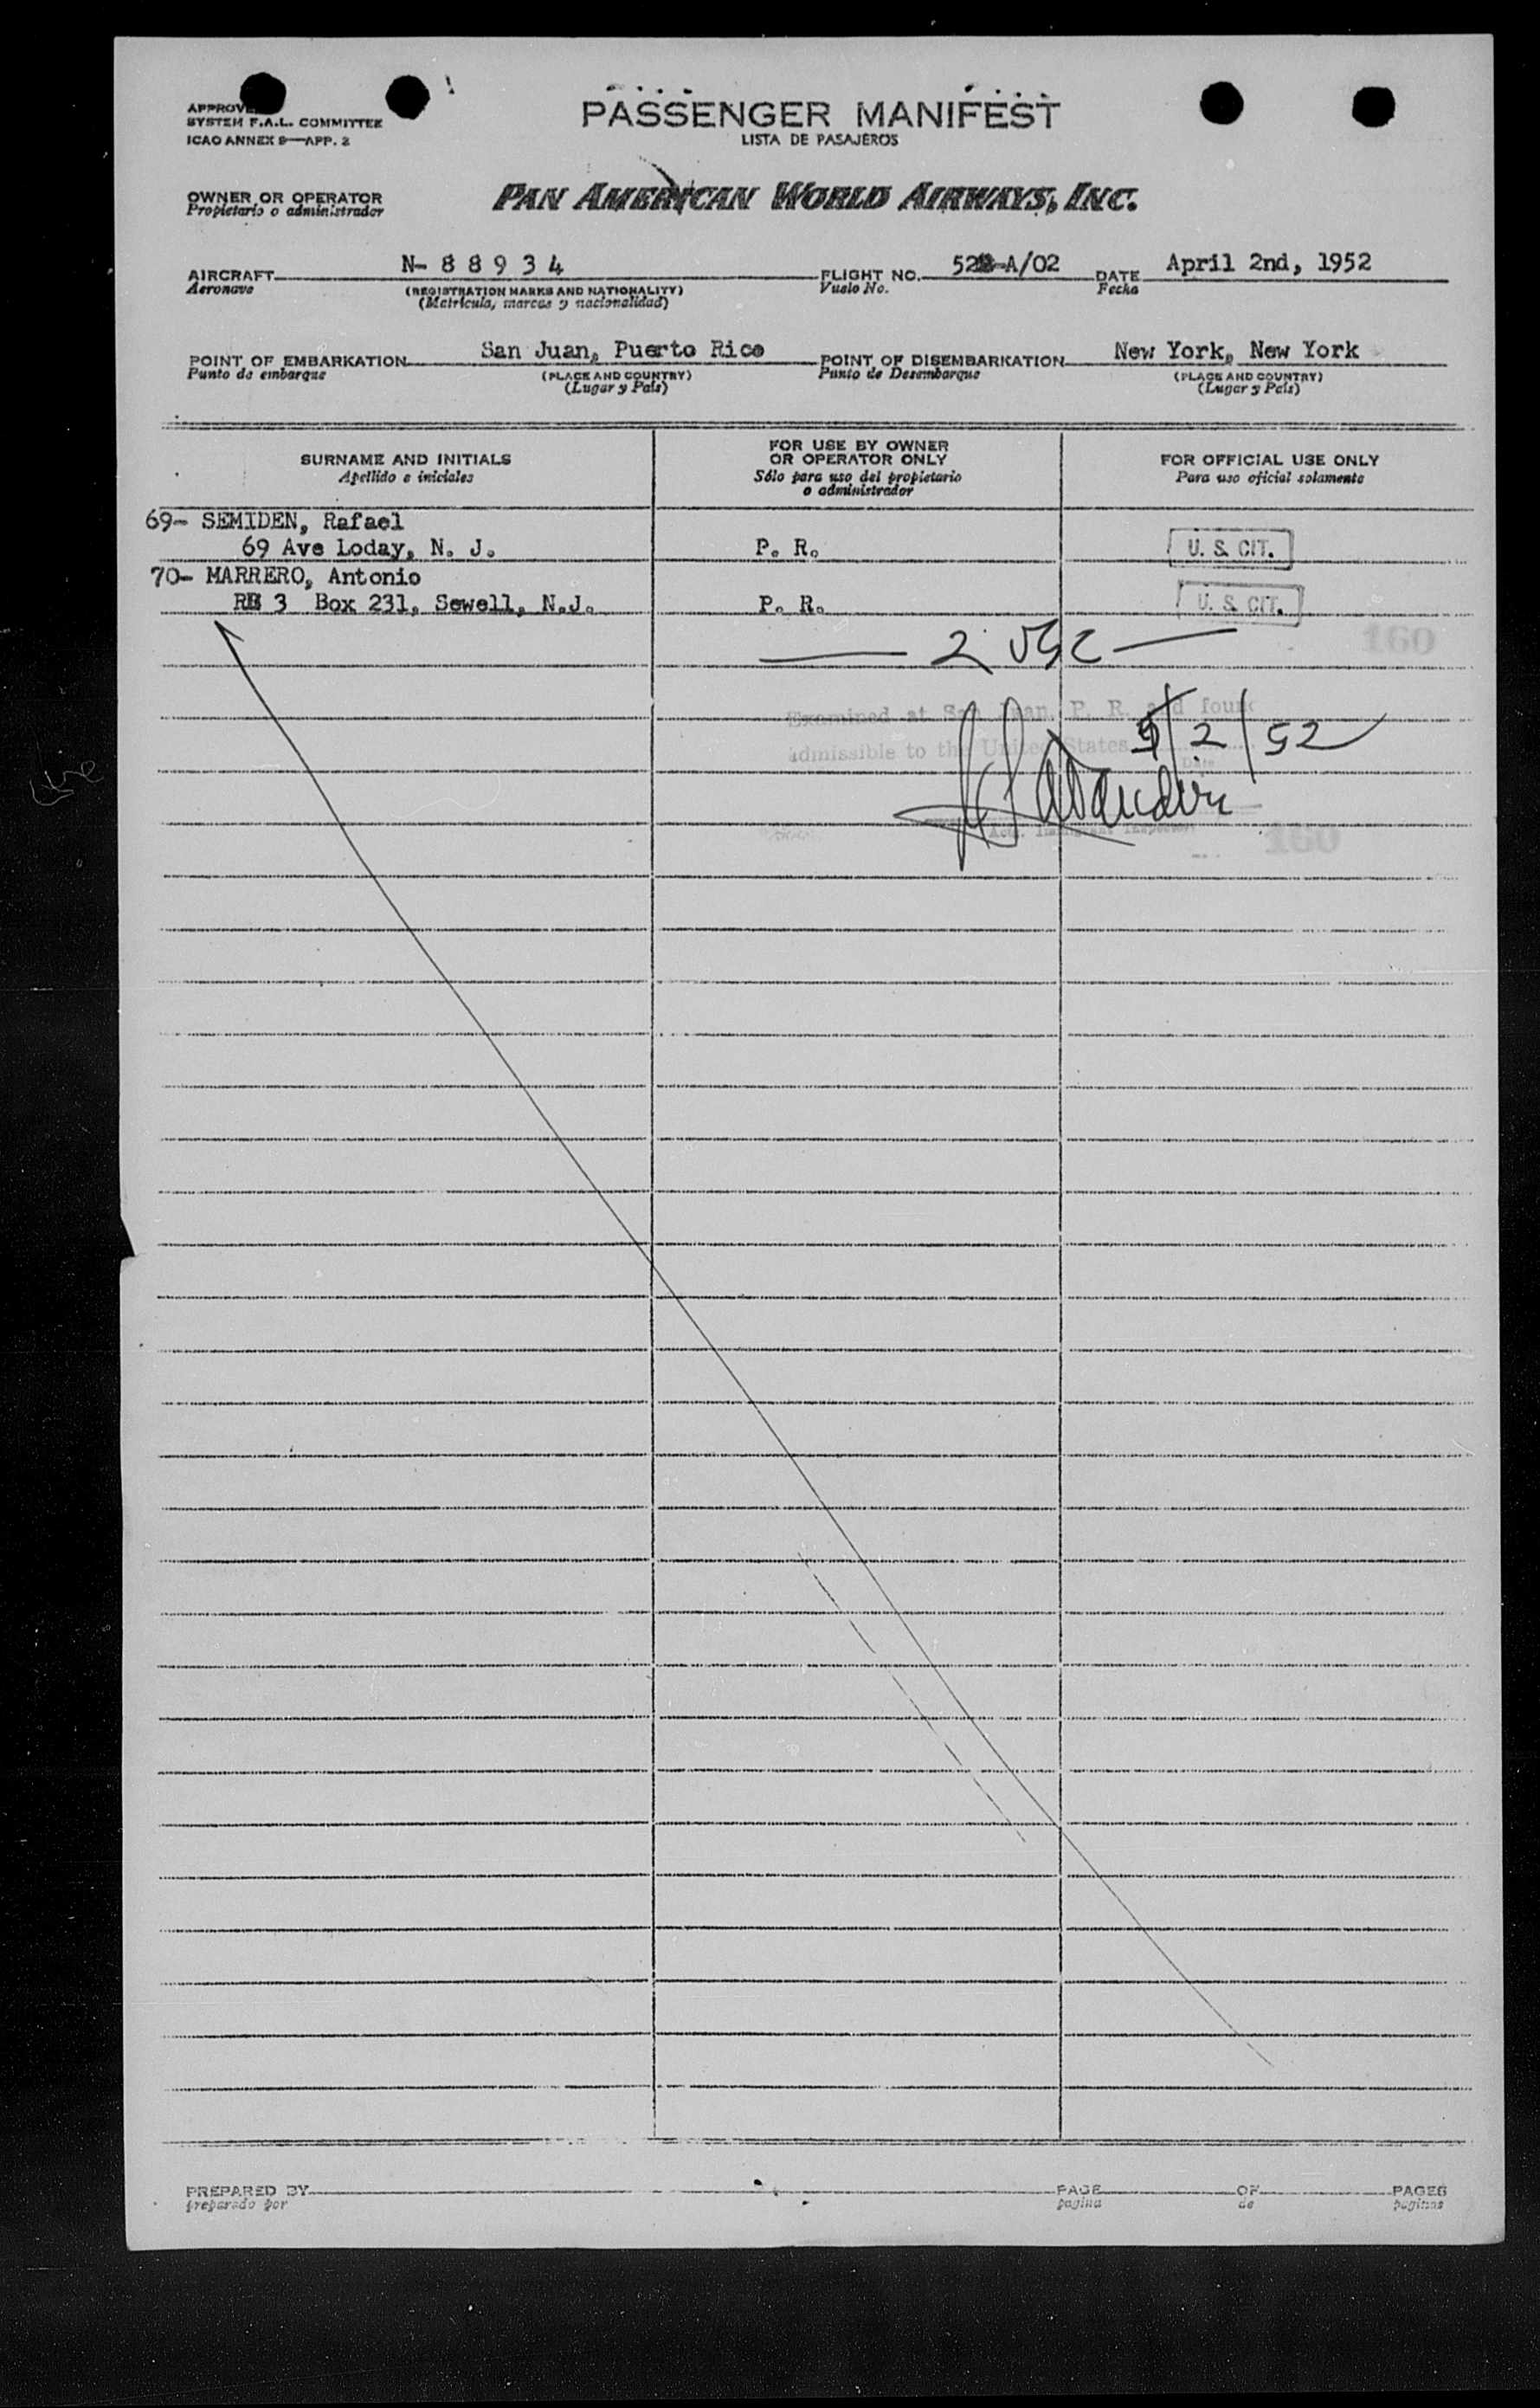 APPROVED
SYSTEM F.A.L. COMMITTEE
ICAO ANNEX 9—APP. 2
PASSENGER MANIFEST
LISTA DE PASAJEROS
OWNER OR OPERATOR
Propietario o administrador
PAN AMERICAN WORLD AIRWAYS, INC.
AIRCRAFT N- 8 8 9 3 4 FLIGHT NO. A/02 DATE April 2nd, 1952
Aeronave (REGISTRATION MARKS AND NATIONALITY) Vuelo No. Fecha
(Matrícula, marcas y nacionalidad)
POINT OF EMBARKATION San Juan, Puerto Rico POINT OF DISEMBARKATION New York, New York
Punto de embarque (PLACE AND COUNTRY) Punto de Desembarque (PLACE AND COUNTRY)
(Lugar y País) (Lugar y País)
SURNAME AND INITIALS
Apellido e iniciales
FOR USE BY OWNER
OR OPERATOR ONLY
Sólo para uso del propietario
o administrador
FOR OFFICIAL USE ONLY
Para uso oficial solamente
69- SEMIDEN, Rafael
69 Ave Loday, N. J. P. R. U. S. CIT.
70- MARRERO, Antonio
3 Box 231, Sewell, N.J. P. R. U. S. CIT.
2 USC
160
Examined at San Juan, P. R. and found
admissible to the United States 2/52
Date
Immigrant Inspector
160
PREPARED BY PAGE OF PAGES
preparado por pagina de paginas